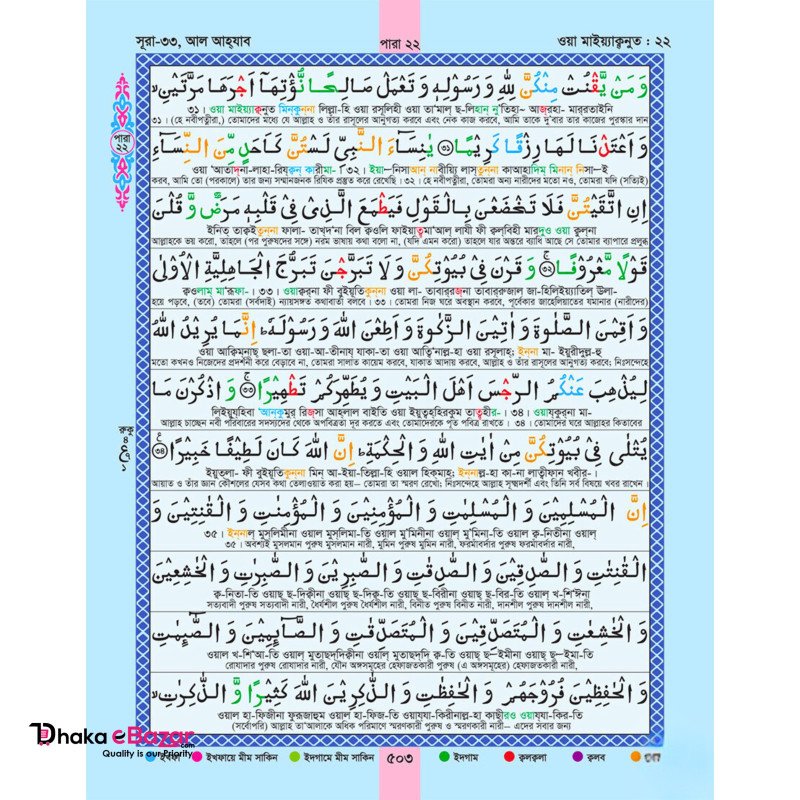 সূরা-৩৩, আল আহ্‌যাব
পারা ২২
ওয়া মাইয়্যাক্বনুত : ২২
وَ مَنْ يَّقْنُتْ مِنْكُنَّ لِلّٰهِ وَ رَسُوْلِهٖ وَ تَعْمَلْ صَالِحًا نُّؤْتِهَاۤ اَجْرَهَا مَرَّتَيْنِ ۙ
৩১। ওয়া মাইয়্যাক্বনুত মিন্‌কুননা লিল্লা-হি ওয়া রসূলিহী ওয়া তা'মাল্‌ ছ-লিহান্‌ নু'তিহা~ আজরহা- মার্‌রতাইনি
৩১। (হে নবীপত্নীরা,) তোমাদের মধ্যে যে আল্লাহ ও তাঁর রাসূলের আনুগত্য করবে এবং নেক কাজ করবে, আমি তাকে দু'বার তার কাজের পুরস্কার দান
وَ اَعْتَدْنَا لَهَا رِزْقًا كَرِيْمًا ﴿۳۱﴾ يٰنِسَآءَ النَّبِيِّ لَسْتُنَّ كَاَحَدٍ مِّنَ النِّسَآءِ
ওয়া আ'তাদ্‌না-লাহা-রিয্‌ক্বন্‌ কারীমা-। ৩২। ইয়া-নিসাআন্‌ নাবীয়্যি লাস্‌তুন্‌না কাআহাদিম্‌ মিনান্‌ নিসা-ই
করব, আমি তো (পরকালে) তার জন্য সম্মানজনক রিযিক প্রস্তুত করে রেখেছি। ৩২। হে নবীপত্নীরা, তোমরা অন্য নারীদের মতো নও, তোমরা যদি (সত্যিই)
اِنِ اتَّقَيْتُنَّ فَلَا تَخْضَعْنَ بِالْقَوْلِ فَيَطْمَعَ الَّذِيْ فِيْ قَلْبِهٖ مَرَضٌ وَّ قُلْنَ
ইনিত্‌ তাক্বইতুন্‌না ফালা- তাখ্‌দ্ব'না বিল ক্বওলি ফাইয়াত্বমা'আল্‌ লাযী ফী ক্বলবিহী মারদ্বুও ওয়া ক্বুল্‌না
আল্লাহকে ভয় করো, তাহলে (পর পুরুষদের সঙ্গে) নরম ভাষায় কথা বলো না, (যদি এমন করো) তাহলে যার অন্তরে ব্যাধি আছে সে তোমার ব্যাপারে প্রলুব্ধ
قَوْلًا مَّعْرُوْفًا ﴿۳۲﴾ وَ قَرْنَ فِيْ بُيُوْتِكُنَّ وَ لَا تَبَرَّجْنَ تَبَرُّجَ الْجَاهِلِيَّةِ الْاُوْلٰى
ক্বওলাম্‌ মা'রূফা-। ৩৩। ওয়াক্বর্‌না ফী বুইয়ূতিকুন্‌না ওয়া লা- তাবার্‌রজ্‌না তাবাররুজাল জা-হিলিইয়্যাতিল্‌ ঊলা-
হয়ে পড়বে, (তবে) তোমরা (সর্বদাই) ন্যায়সঙ্গত কথাবার্তা বলবে। ৩৩। তোমরা নিজ ঘরে অবস্থান করবে, পূর্বেকার জাহেলিয়াতের যমানার (নারীদের)
وَ اَقِمْنَ الصَّلٰوةَ وَ اٰتِيْنَ الزَّكٰوةَ وَ اَطِعْنَ اللّٰهَ وَ رَسُوْلَهٗ ؕ اِنَّمَا يُرِيْدُ اللّٰهُ
ওয়া আক্বিম্‌নাছ্‌ ছলা-তা ওয়া আ-তীনায্‌ যাকা-তা ওয়া আত্বি'নাল্ল-হা ওয়া রসূলাহ্‌; ইন্‌না মা- ইয়ুরীদুল্ল-হু
মতো কখনও নিজেদের প্রদর্শনী করে বেড়াবে না, তোমরা সালাত কায়েম করবে, যাকাত আদায় করবে, আল্লাহ ও তাঁর রাসূলের আনুগত্য করবে; নিঃসন্দেহে
لِيُذْهِبَ عَنْكُمُ الرِّجْسَ اَهْلَ الْبَيْتِ وَ يُطَهِّرَكُمْ تَطْهِيْرًا ﴿۳۳﴾ وَ اذْكُرْنَ مَا
লিইয়ুয্‌হিবা 'আন্‌কুমুর্‌ রিজ্‌সা আহ্‌লাল বাইতি ওয়া ইয়ুত্বহ্‌হিরকুম তাত্বহীর-। ৩৪। ওয়ায্‌কুর্‌না মা-
আল্লাহ চাচ্ছেন নবী পরিবারের সদস্যদের থেকে অপবিত্রতা দূর করতে এবং তোমাদেরকে পূত পবিত্র রাখতে। ৩৪। তোমাদের ঘরে আল্লাহর কিতাবের
يُتْلٰى فِيْ بُيُوْتِكُنَّ مِنْ اٰيٰتِ اللّٰهِ وَ الْحِكْمَةِ ؕ اِنَّ اللّٰهَ كَانَ لَطِيْفًا خَبِيْرًا ﴿۳۴﴾
ইয়ুত্‌লা- ফী বুইয়ূতিকুন্‌না মিন্‌ আ-ইয়া-তিল্লা-হি ওয়াল হিক্‌মাহ্‌; ইন্‌নাল্ল-হা কা-না লাত্বীফান্‌ খবীর-।
আয়াত ও তাঁর জ্ঞান কৌশলের যেসব কথা তেলাওয়াত করা হয়– তোমরা তা স্মরণ রেখো; নিঃসন্দেহে আল্লাহ সূক্ষ্মদর্শী এবং তিনি সর্ব বিষয়ে খবর রাখেন।
اِنَّ الْمُسْلِمِيْنَ وَ الْمُسْلِمٰتِ وَ الْمُؤْمِنِيْنَ وَ الْمُؤْمِنٰتِ وَ الْقٰنِتِيْنَ وَ
৩৫। ইন্‌নাল্‌ মুসলিমীনা ওয়াল মুসলিমা-তি ওয়াল্‌ মু'মিনীনা ওয়াল্‌ মু'মিনা-তি ওয়াল্‌ ক্ব-নিতীনা ওয়াল্‌
৩৫। অবশ্যই মুসলমান পুরুষ মুসলমান নারী, মুমিন পুরুষ মুমিন নারী, ফরমাবর্দার পুরুষ ফরমাবর্দার নারী,
الْقٰنِتٰتِ وَ الصّٰدِقِيْنَ وَ الصّٰدِقٰتِ وَ الصّٰبِرِيْنَ وَ الصّٰبِرٰتِ وَ الْخٰشِعِيْنَ
ক্ব-নিতা-তি ওয়াছ্‌ ছ-দিক্বীনা ওয়াছ্‌ ছ-দিক্ব-তি ওয়াছ্‌ ছ-বিরীনা ওয়াছ্‌ ছ-বির-তি ওয়াল্‌ খ-শি'ঈনা
সত্যবাদী পুরুষ সত্যবাদী নারী, ধৈর্যশীল পুরুষ ধৈর্যশীল নারী, বিনীত পুরুষ বিনীত নারী, দানশীল পুরুষ দানশীল নারী,
وَ الْخٰشِعٰتِ وَ الْمُتَصَدِّقِيْنَ وَ الْمُتَصَدِّقٰتِ وَ الصَّآئِمِيْنَ وَ الصّٰٓئِمٰتِ
ওয়াল খ-শি'আ-তি ওয়াল্‌ মুতাছদ্দিক্বীনা ওয়াল্‌ মুতাছদ্দিক্ব-তি ওয়াছ্‌ ছ-ইমীনা ওয়াছ্‌ ছ-ইমা-তি
রোযাদার পুরুষ রোযাদার নারী, যৌন অঙ্গসমূহের হেফাজতকারী পুরুষ (এ অঙ্গসমূহের) হেফাজতকারী নারী,
وَ الْحٰفِظِيْنَ فُرُوْجَهُمْ وَ الْحٰفِظٰتِ وَ الذّٰكِرِيْنَ اللّٰهَ كَثِيْرًا وَّ الذّٰكِرٰتِ ۙ
ওয়াল হা-ফিজীনা ফুরূজাহুম ওয়াল হা-ফিজ-তি ওয়ায্‌যা-কিরীনাল্ল-হা কাছীরও ওয়ায্‌যা-কির-তি
(সর্বোপরি) আল্লাহ তা'আলাকে অধিক পরিমাণে স্মরণকারী পুরুষ ও স্মরণকারী নারী– এদের সবার জন্য
পারা
২২
রুকু
Dhaka eBazar.com
Quality is our Priority
ইখফা
ইখফায়ে মীম সাকিন
ইদগামে মীম সাকিন
৫০৩
ইদগাম
ক্বলক্বলা
ক্বলব